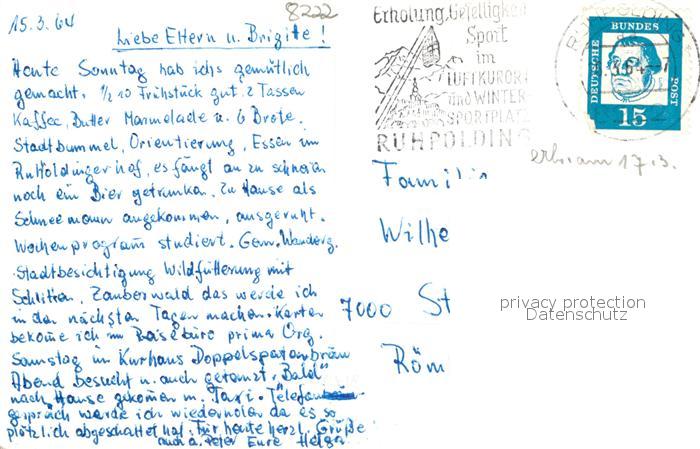 15.3.64
8222
Liebe Eltern u. Brigitte!
Heute Sonntag hab ichs gemütlich
gemacht. 1/2 10 Frühstück gut. 2 Tassen
Kaffee, Butter Marmelade u. 6 Brote.
Stadtbummel, Orientierung, Essen im
Ruholdingerhof, es fängt an zu schneien
noch ein Bier getrunken. Zu Hause als
Schneemann angekommen, ausgeruht.
Wochenprogram studiert. Gem. Wanderg.
Stadtbesichtigung Wildfütterung mit
Schlitten, Zauberwald das werde ich
in den nächsten Tagen machen. Karten
bekome ich im Reisebüro prima Org.
Samstag im Kurhaus Doppelspatenbräu
Abend besucht u. auch getanzt. Bald
nach Hause gekomen m. Taxi. Telefon
gespräch werde ich wiederholen da es so
plötzlich abgeschaltet hat. Für heute herzl. Grüße
auch a. Peter Eure Helga
Erholung, Geselligkeit
Sport
im
LUFTKURORT
und WINTER-
SPORTPLATZ
RUHPOLDING
RUHPOLDING
DEUTSCHE BUNDESPOST
15
erh. am 17.3.
Familie
Wilhe
7000 St
Röm
privacy protection
Datenschutz